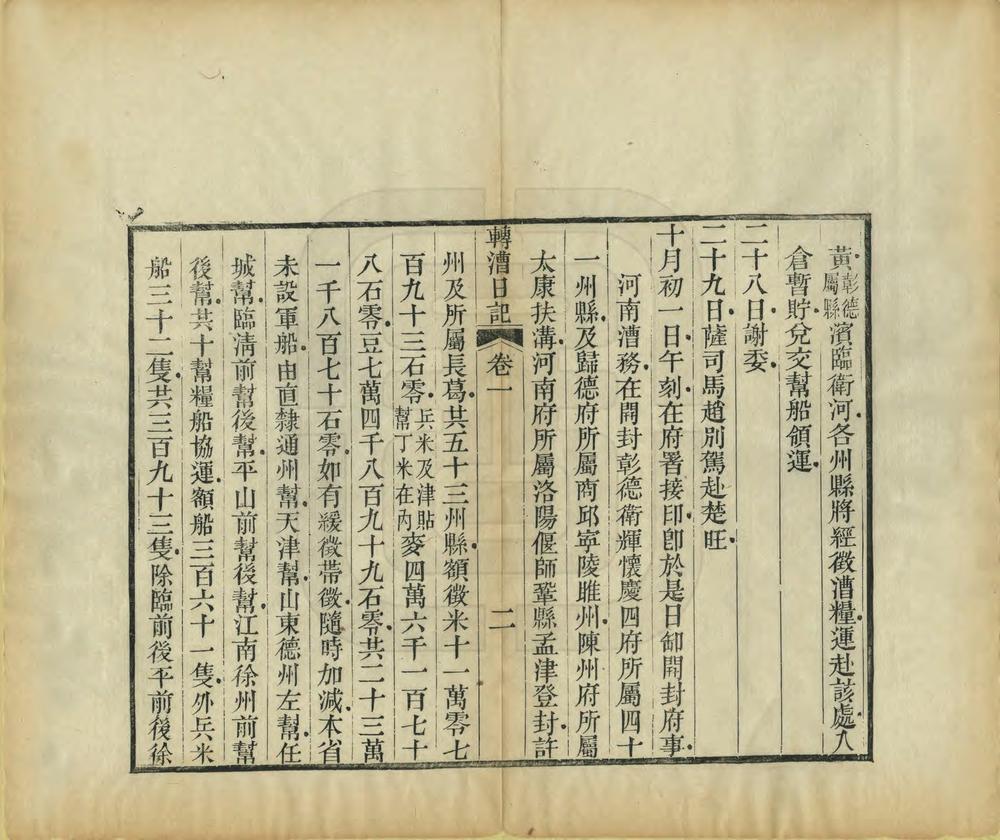 黃彰德屬縣濱臨衛河各州縣將經徵漕糧運赴該處入
倉暫貯兌交幫船領運
二十八日謝委
二十九日薩司馬趙別駕赴楚旺
十月初一日午刻在府署接印卽於是日卸開封府事
河南漕務在開封彰德衛輝懷慶四府所屬四十
一州縣及歸德府所屬商邱寧陵睢州陳州府所屬
太康扶溝河南府所屬洛陽偃師鞏縣孟津登封許
轉漕日記 卷一 二
州及所屬長葛共五十三州縣額徵米十一萬零七
百九十三石零兵米及津貼幫丁米在內麥四萬六千一百七十
八石零豆七萬四千八百九十九石零共二十三萬
一千八百七十石零如有緩徵帶徵隨時加減本省
未設軍船由直隸通州幫天津幫山東德州左幫任
城幫臨淸前幫後幫平山前幫後幫江南徐州前幫
後幫共十幫糧船協運額船三百六十一隻外兵米
船三十二隻共三百九十三隻除臨前後平前後徐